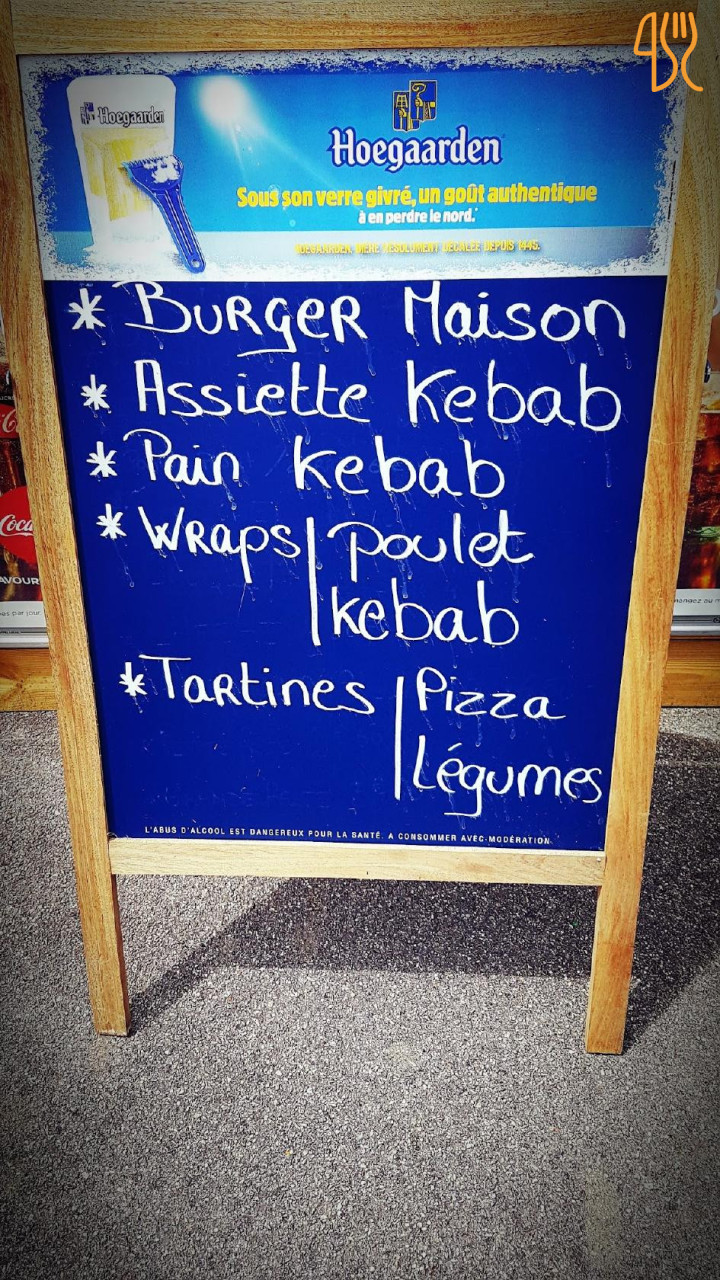 Hoegaarden
Hoegaarden
Sous son verre givré, un goût authentique
à en perdre le nord.*
HOEGAARDEN, BIÈRE RÉSOLUMENT DÉCALÉE DEPUIS 1445.
* BURGER Maison
* Assiette Kebab
* Pain Kebab
* WRaps | poulet
kebab
* TaRtines | Pizza
Légumes
L'ABUS D'ALCOOL EST DANGEREUX POUR LA SANTÉ. A CONSOMMER AVEC MODÉRATION
Coca
AVOUR
es par jour
mangez au m